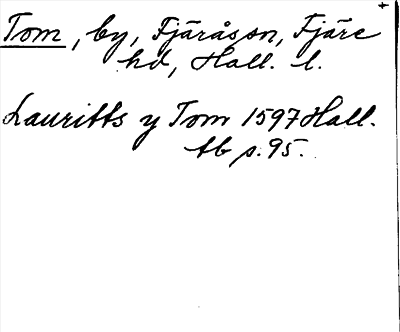 Tom, by, Fjärås sn, Fjäre
hd, Hall. l.
Lauritts y Tom 1597 Hall.
tb p. 95.